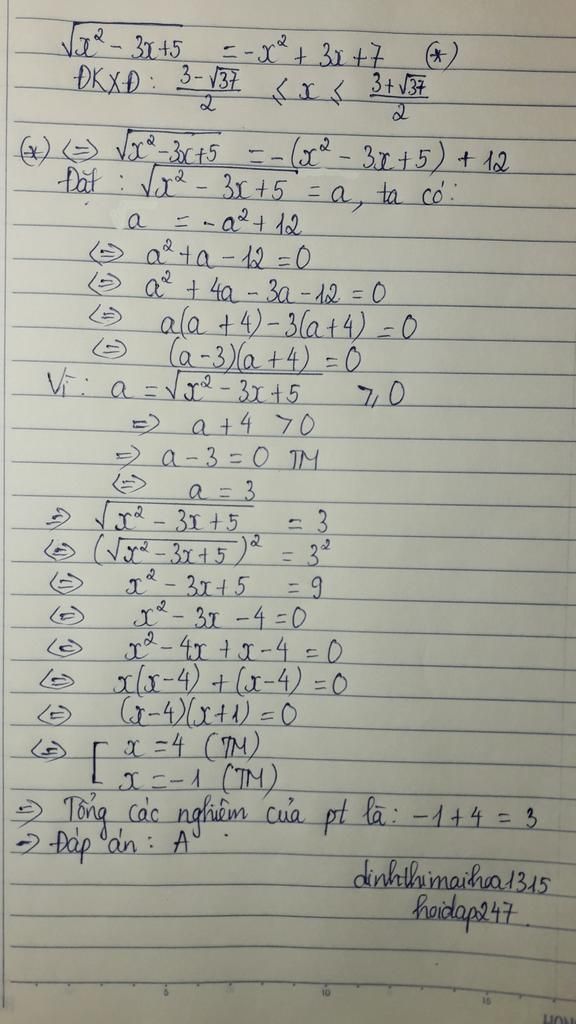 √(x² - 3x+5) = -x² + 3x+7 (*)
ĐKXĐ: (3-√37)/2 ≤ x ≤ (3+√37)/2
(*) ⇔ √(x²-3x+5) = -(x² - 3x+5) + 12
Đặt : √(x² - 3x+5) = a, ta có:
a = -a²+12
⇔ a²+a-12=0
⇔ a² + 4a - 3a-12=0
⇔ a(a+4)-3(a+4) = 0
⇔ (a-3)(a+4) = 0
Vì: a = √(x² - 3x+5) ≥ 0
⇒ a+4 > 0
⇒ a-3 = 0 TM
⇔ a = 3
⇒ √(x² - 3x+5) = 3
⇔ (√(x²-3x+5))² = 3²
⇔ x² - 3x+5 = 9
⇔ x² - 3x - 4=0
⇔ x² - 4x + x-4 = 0
⇔ x(x-4) + (x-4) = 0
⇔ (x-4)(x+1) = 0
⇔ [ x = 4 (TM)
x = -1 (TM)
⇒ Tổng các nghiệm của pt là: -1+4 = 3
⇒ Đáp án: A
dinhthimaihoa1315
hoidap247.
5 10 15